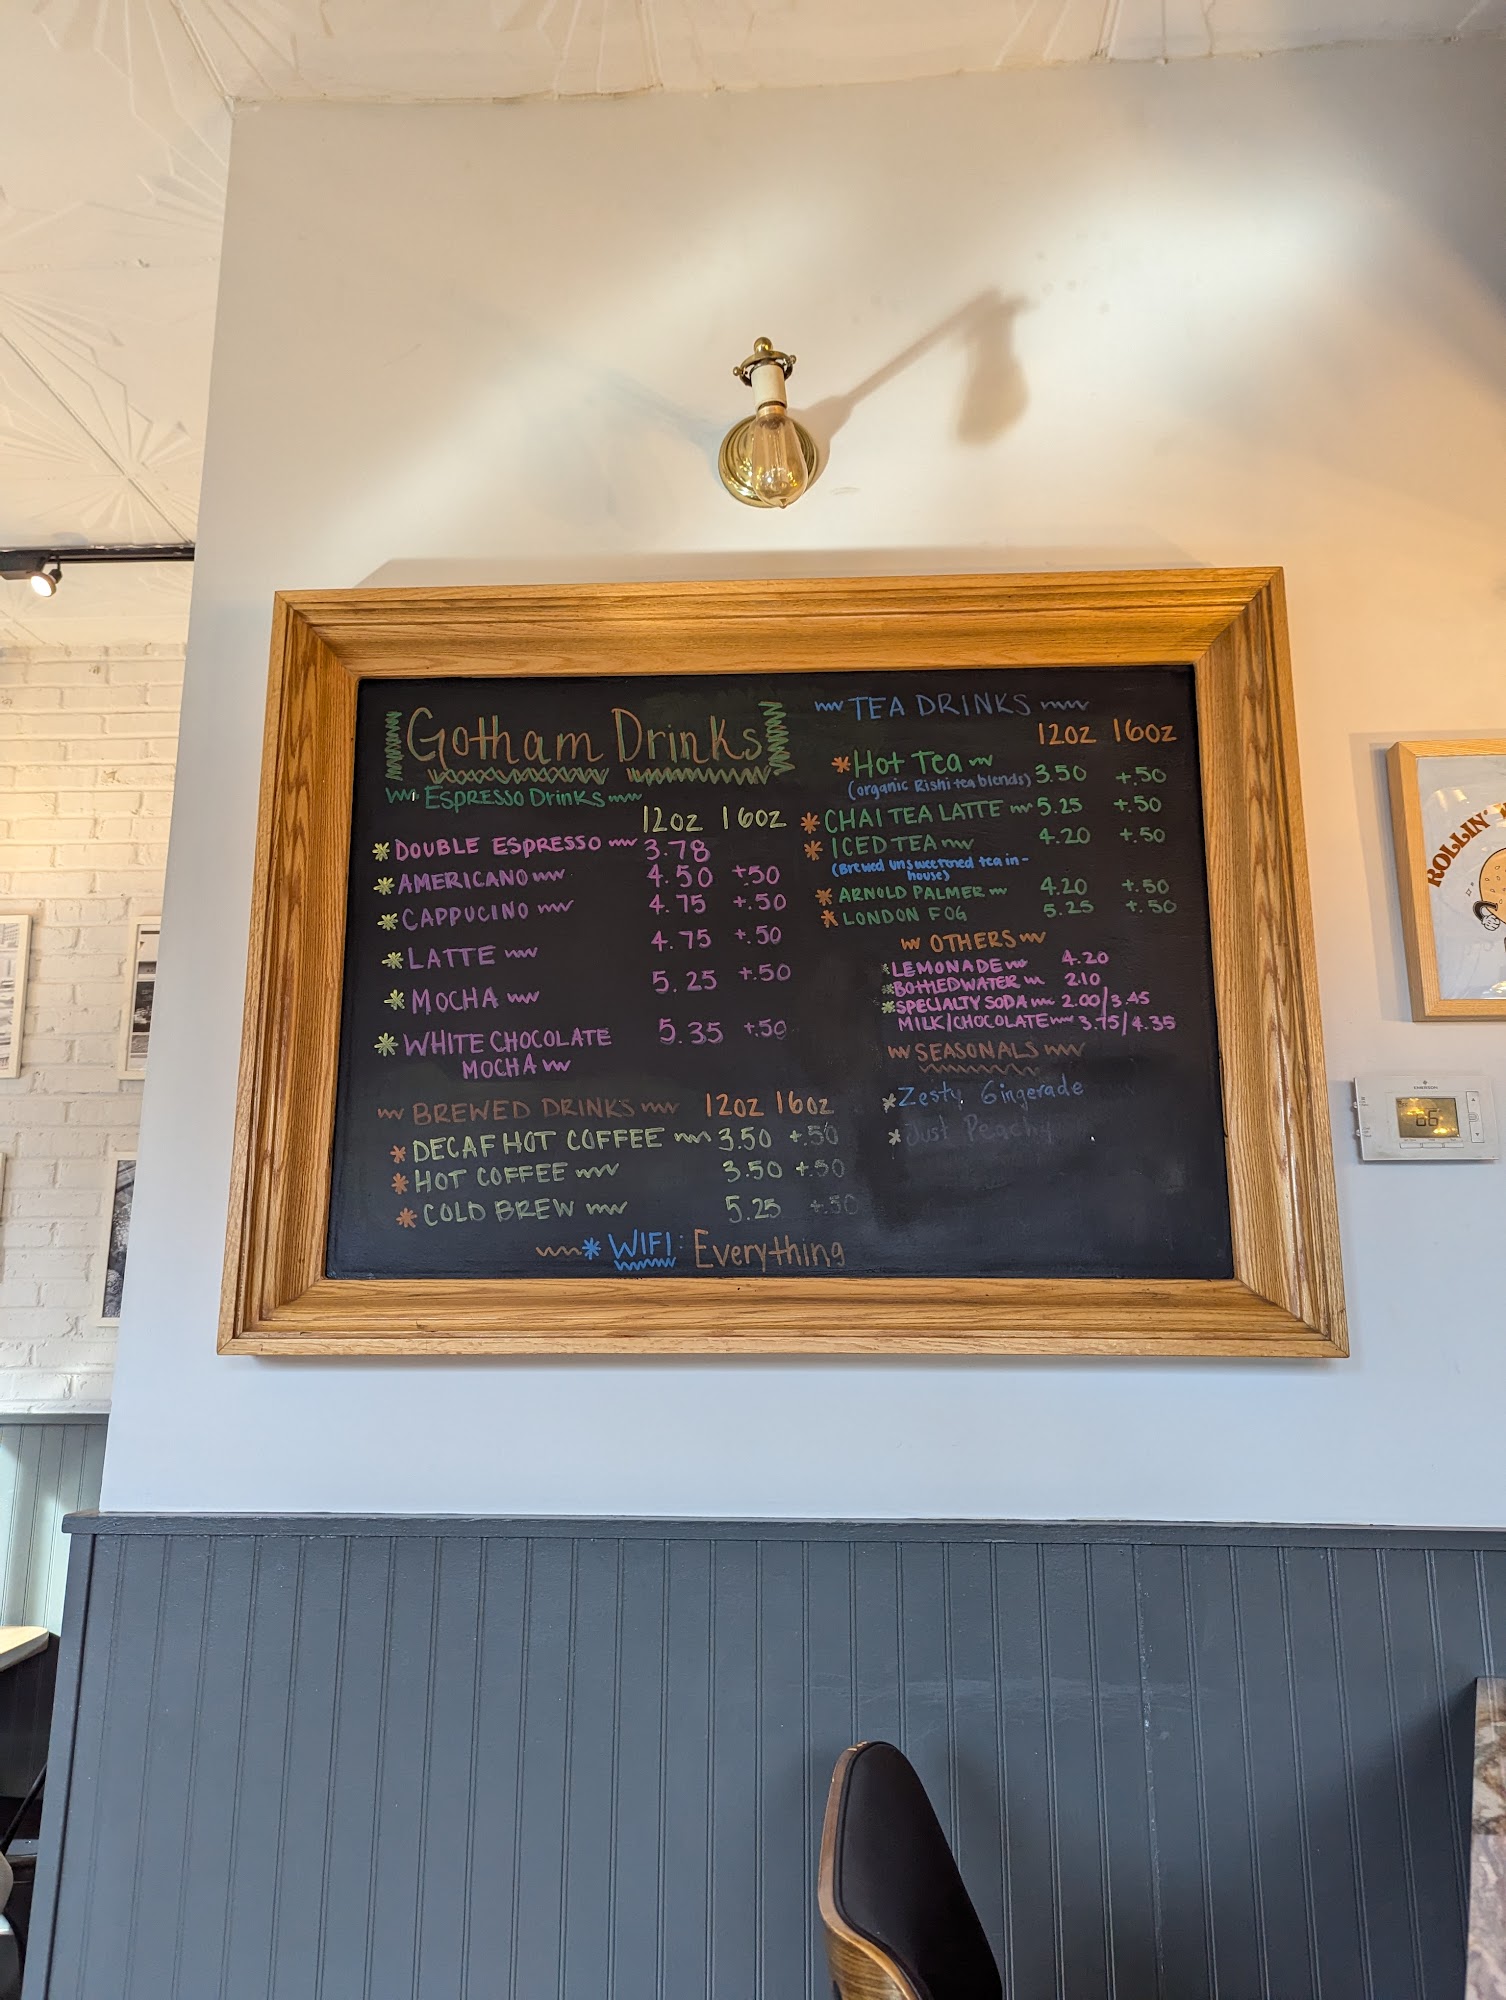 Gotham Drinks
Espresso Drinks
12oz 16oz
DOUBLE ESPRESSO 3.78
AMERICANO 4.50 +.50
CAPPUCINO 4.75 +.50
LATTE 4.75 +.50
MOCHA 5.25 +.50
WHITE CHOCOLATE 5.35 +.50
MOCHA
BREWED DRINKS 12oz 16oz
DECAF HOT COFFEE 3.50 +.50
HOT COFFEE 3.50 +.50
COLD BREW 5.25 +.50
WIFI: Everything
TEA DRINKS
12oz 16oz
Hot Tea 3.50 +.50
(organic Rishi tea blends)
CHAI TEA LATTE 5.25 +.50
ICED TEA 4.20 +.50
(Brewed unsweetened tea in-
house)
ARNOLD PALMER 4.20 +.50
LONDON FOG 5.25 +.50
OTHERS
LEMONADE 4.20
BOTTLED WATER 2.10
SPECIALTY SODA 2.00/3.45
MILK/CHOCOLATE 3.75/4.35
SEASONALS
Zesty Gingerade
Just Peachy
ROLLIN'
EMERSON
66